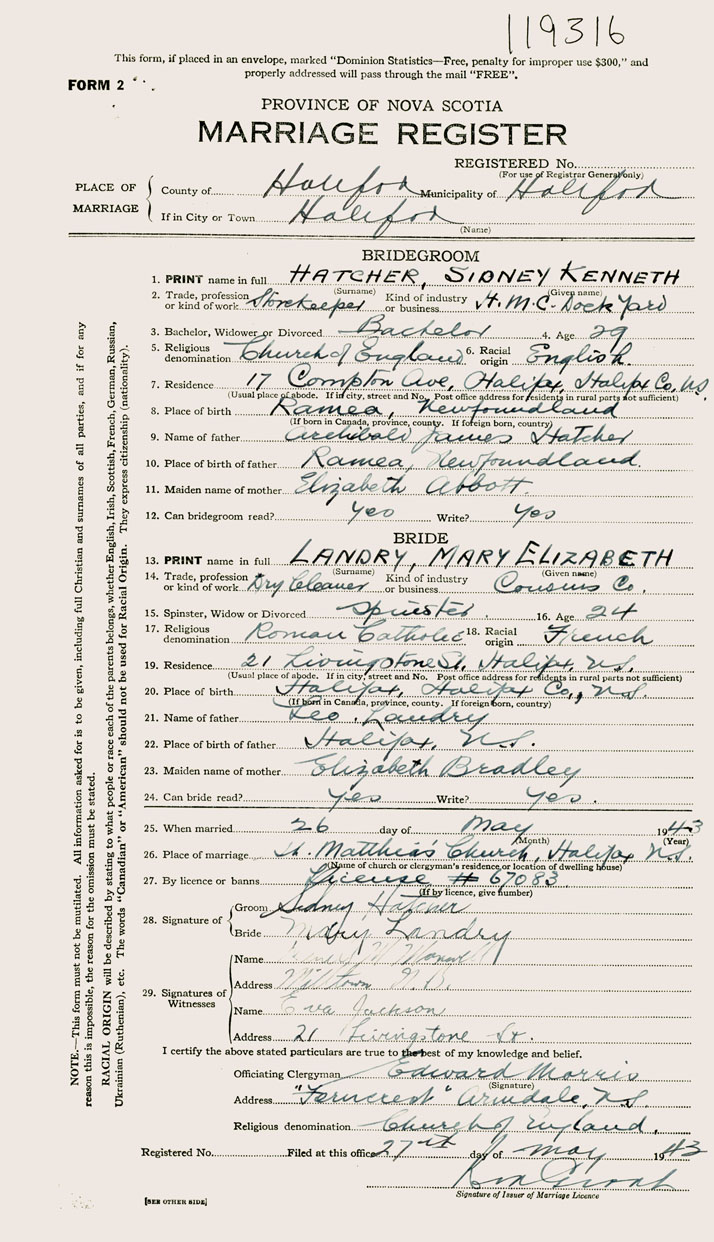 119316
This form, if placed in an envelope, marked “Dominion Statistics—Free, penalty for improper use $300,” and
properly addressed will pass through the mail “FREE”.
FORM 2
PROVINCE OF NOVA SCOTIA
MARRIAGE REGISTER
REGISTERED No.
(For use of Registrar General only)
PLACE OF MARRIAGE
County of Halifax Municipality of Halifax
If in City or Town Halifax
(Name)
BRIDEGROOM
1. PRINT name in full HATCHER, SIDNEY KENNETH
(Surname) (Given name)
2. Trade, profession or kind of work Storekeeper Kind of industry or business H.M.C. Dock Yard
3. Bachelor, Widower or Divorced Bachelor 4. Age 29
5. Religious denomination Church of England 6. Racial origin English
7. Residence 17 Compton Ave, Halifax, Halifax Co, N.S.
(Usual place of abode. If in city, street and No. Post office address for residents in rural parts not sufficient)
8. Place of birth Ramea, Newfoundland
(If born in Canada, province, county. If foreign born, country)
9. Name of father Archibald James Hatcher
10. Place of birth of father Ramea, Newfoundland.
11. Maiden name of mother Elizabeth Abbott.
12. Can bridegroom read? Yes Write? Yes
BRIDE
13. PRINT name in full LANDRY, MARY ELIZABETH
(Surname) (Given name)
14. Trade, profession or kind of work Dry Cleaner Kind of industry or business Cousins Co.
15. Spinster, Widow or Divorced Spinster. 16. Age 24
17. Religious denomination Roman Catholic 18. Racial origin French
19. Residence 21 Livingstone St. Halifax, N.S.
(Usual place of abode. If in city, street and No. Post office address for residents in rural parts not sufficient)
20. Place of birth Halifax, Halifax Co., N.S.
(If born in Canada, province, county. If foreign born, country)
21. Name of father Leo Landry
22. Place of birth of father Halifax, N.S.
23. Maiden name of mother Elizabeth Bradley
24. Can bride read? Yes Write? Yes.
25. When married 26 day of May 1943
(Month) (Year)
26. Place of marriage St. Matthias Church, Halifax N.S.
(Name of church or clergyman's residence or location of dwelling house)
27. By licence or banns License # 67083
(If by licence, give number)
28. Signature of
Groom Sidney Hatcher
Bride Mary Landry
29. Signatures of Witnesses
Name
Address Milltown N.B.
Name Eva Jackson
Address 21 Livingstone St.
I certify the above stated particulars are true to the best of my knowledge and belief.
Officiating Clergyman Edward Morris
(Signature)
Address "Ferncrest" Armdale, N.S.
Religious denomination Church of England.
Registered No. Filed at this office 27th day of May 1943
Signature of Issuer of Marriage Licence
[SEE OTHER SIDE]
NOTE.—This form must not be mutilated. All information asked for is to be given, including full Christian and surnames of all parties, and if for any
reason this is impossible, the reason for the omission must be stated.
RACIAL ORIGIN will be described by stating to what people or race each of the parents belongs, whether English, Irish, Scottish, French, German, Russian,
Ukrainian (Ruthenian), etc. The words “Canadian” or “American” should not be used for Racial Origin. They express citizenship (nationality).